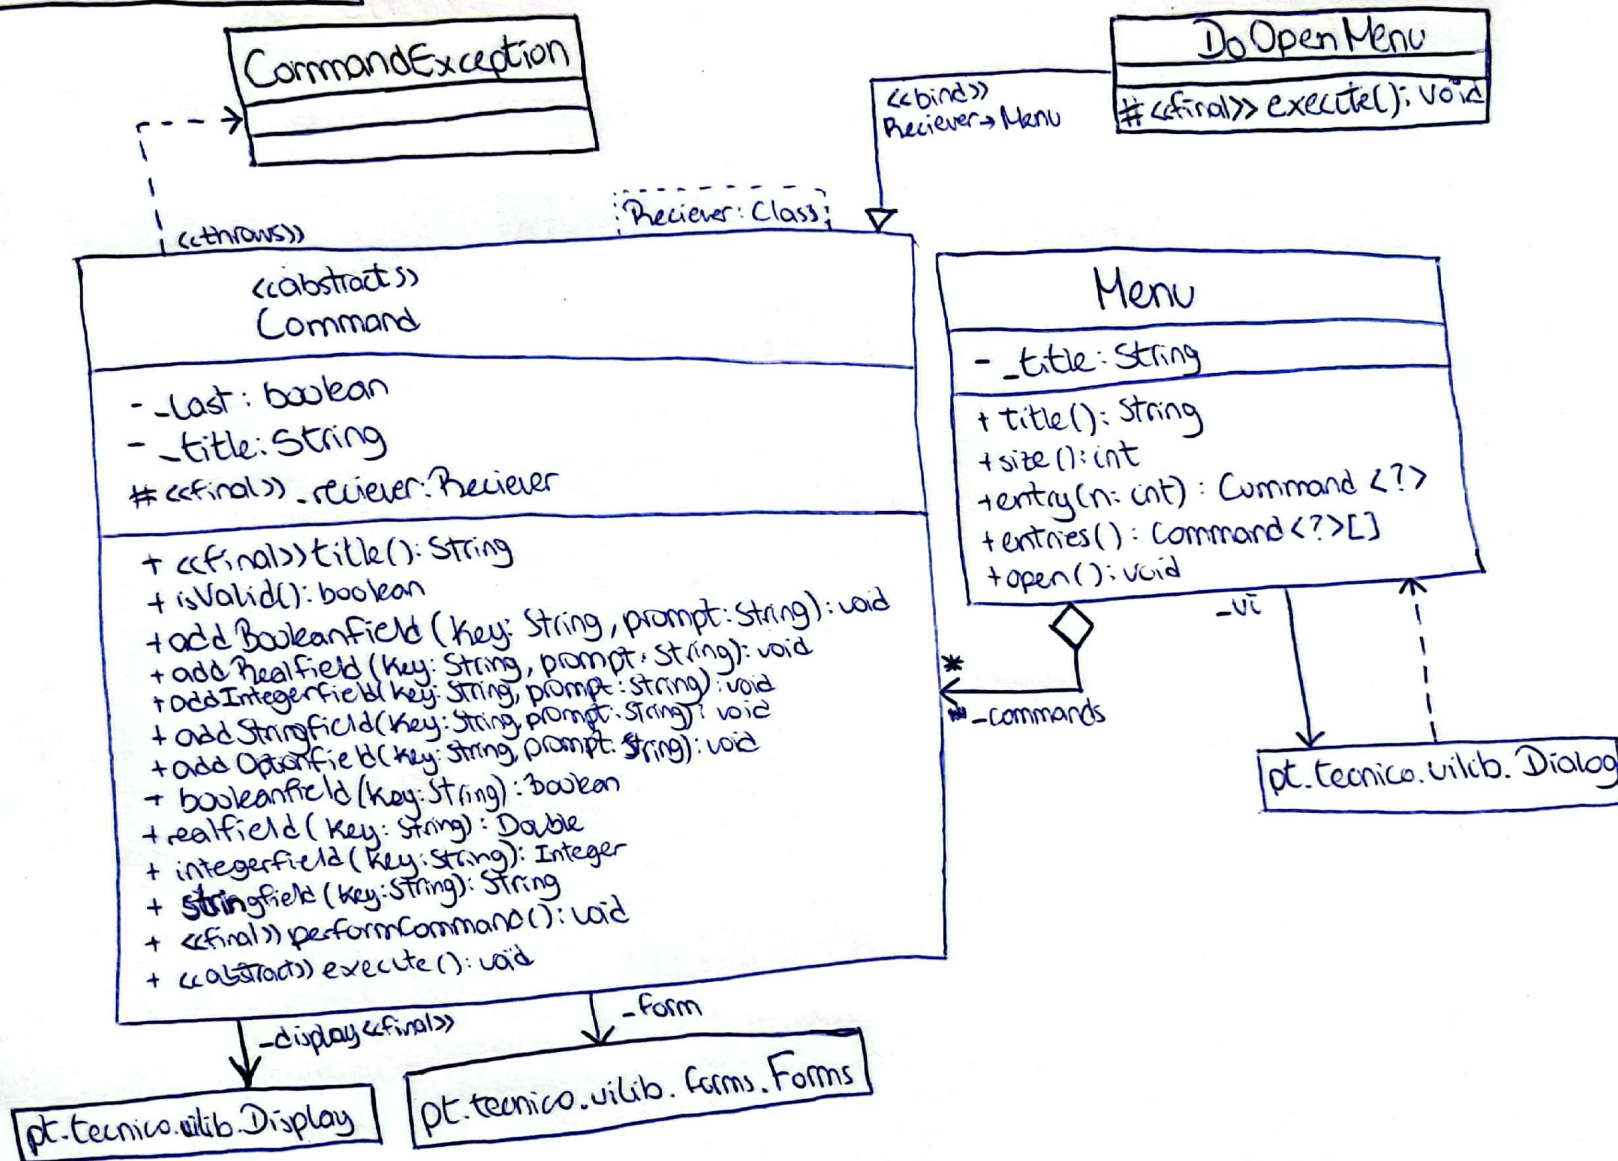 CommandException
DoOpenMenu
# <<final>> execute(): void
<<bind>>
Reciever→Menu
Reciever: Class
<<throws>>
<<abstract>>
Command
- _last: boolean
- _title: String
# <<final>> _reciever: Reciever
+ <<final>> title(): String
+ isValid(): boolean
+ addBooleanfield (key: String, prompt: String): void
+ addRealfield (key: String, prompt: String): void
+ addIntegerfield (key: String, prompt: String): void
+ addStringfield (key: String, prompt: String): void
+ addOptionfield (key: String, prompt: String): void
+ booleanfield (key: String): boolean
+ realfield (key: String): Double
+ integerfield (key: String): Integer
+ stringfield (key: String): String
+ <<final>> performCommand(): void
+ <<abstract>> execute(): void
Menu
- _title: String
+ title(): String
+ size(): int
+ entry(n: int): Command <?>
+ entries(): Command <?>[]
+ open(): void
_ui
*
_commands
pt.tecnico.uilib.Dialog
_display <<final>>
_form
pt.tecnico.uilib.Display
pt.tecnico.uilib.forms.Forms